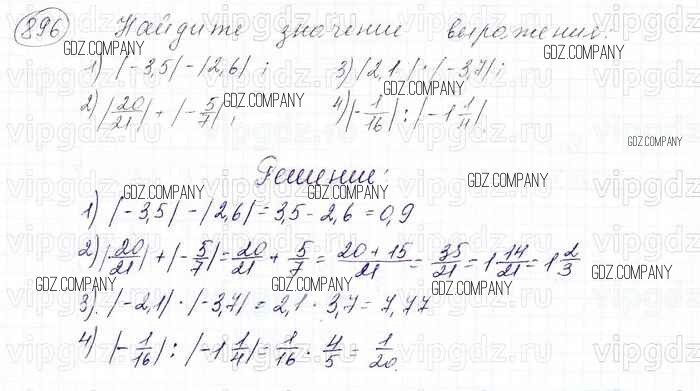 896 Найдите значение выражения:
GDZ.COMPANY GDZ.COMPANY
1) |-3,5| - |2,6|; 3) |2,1| · |-3,7|;
GDZ.COMPANY GDZ.COMPANY
2) |20/21| + |-5/7|; 4) |-1/16| : |-1 1/4|.
GDZ.COMPANY
Решение:
GDZ.COMPANY GDZ.COMPANY
1) |-3,5| - |2,6| = 3,5 - 2,6 = 0,9
GDZ.COMPANY GDZ.COMPANY
2) |20/21| + |-5/7| = 20/21 + 5/7 = (20 + 15)/21 = 35/21 = 1 14/21 = 1 2/3
GDZ.COMPANY GDZ.COMPANY GDZ.COMPANY
3) |-2,1| · |-3,7| = 2,1 · 3,7 = 7,77
4) |-1/16| : |-1 1/4| = 1/16 · 4/5 = 1/20.
vipgdz.ru